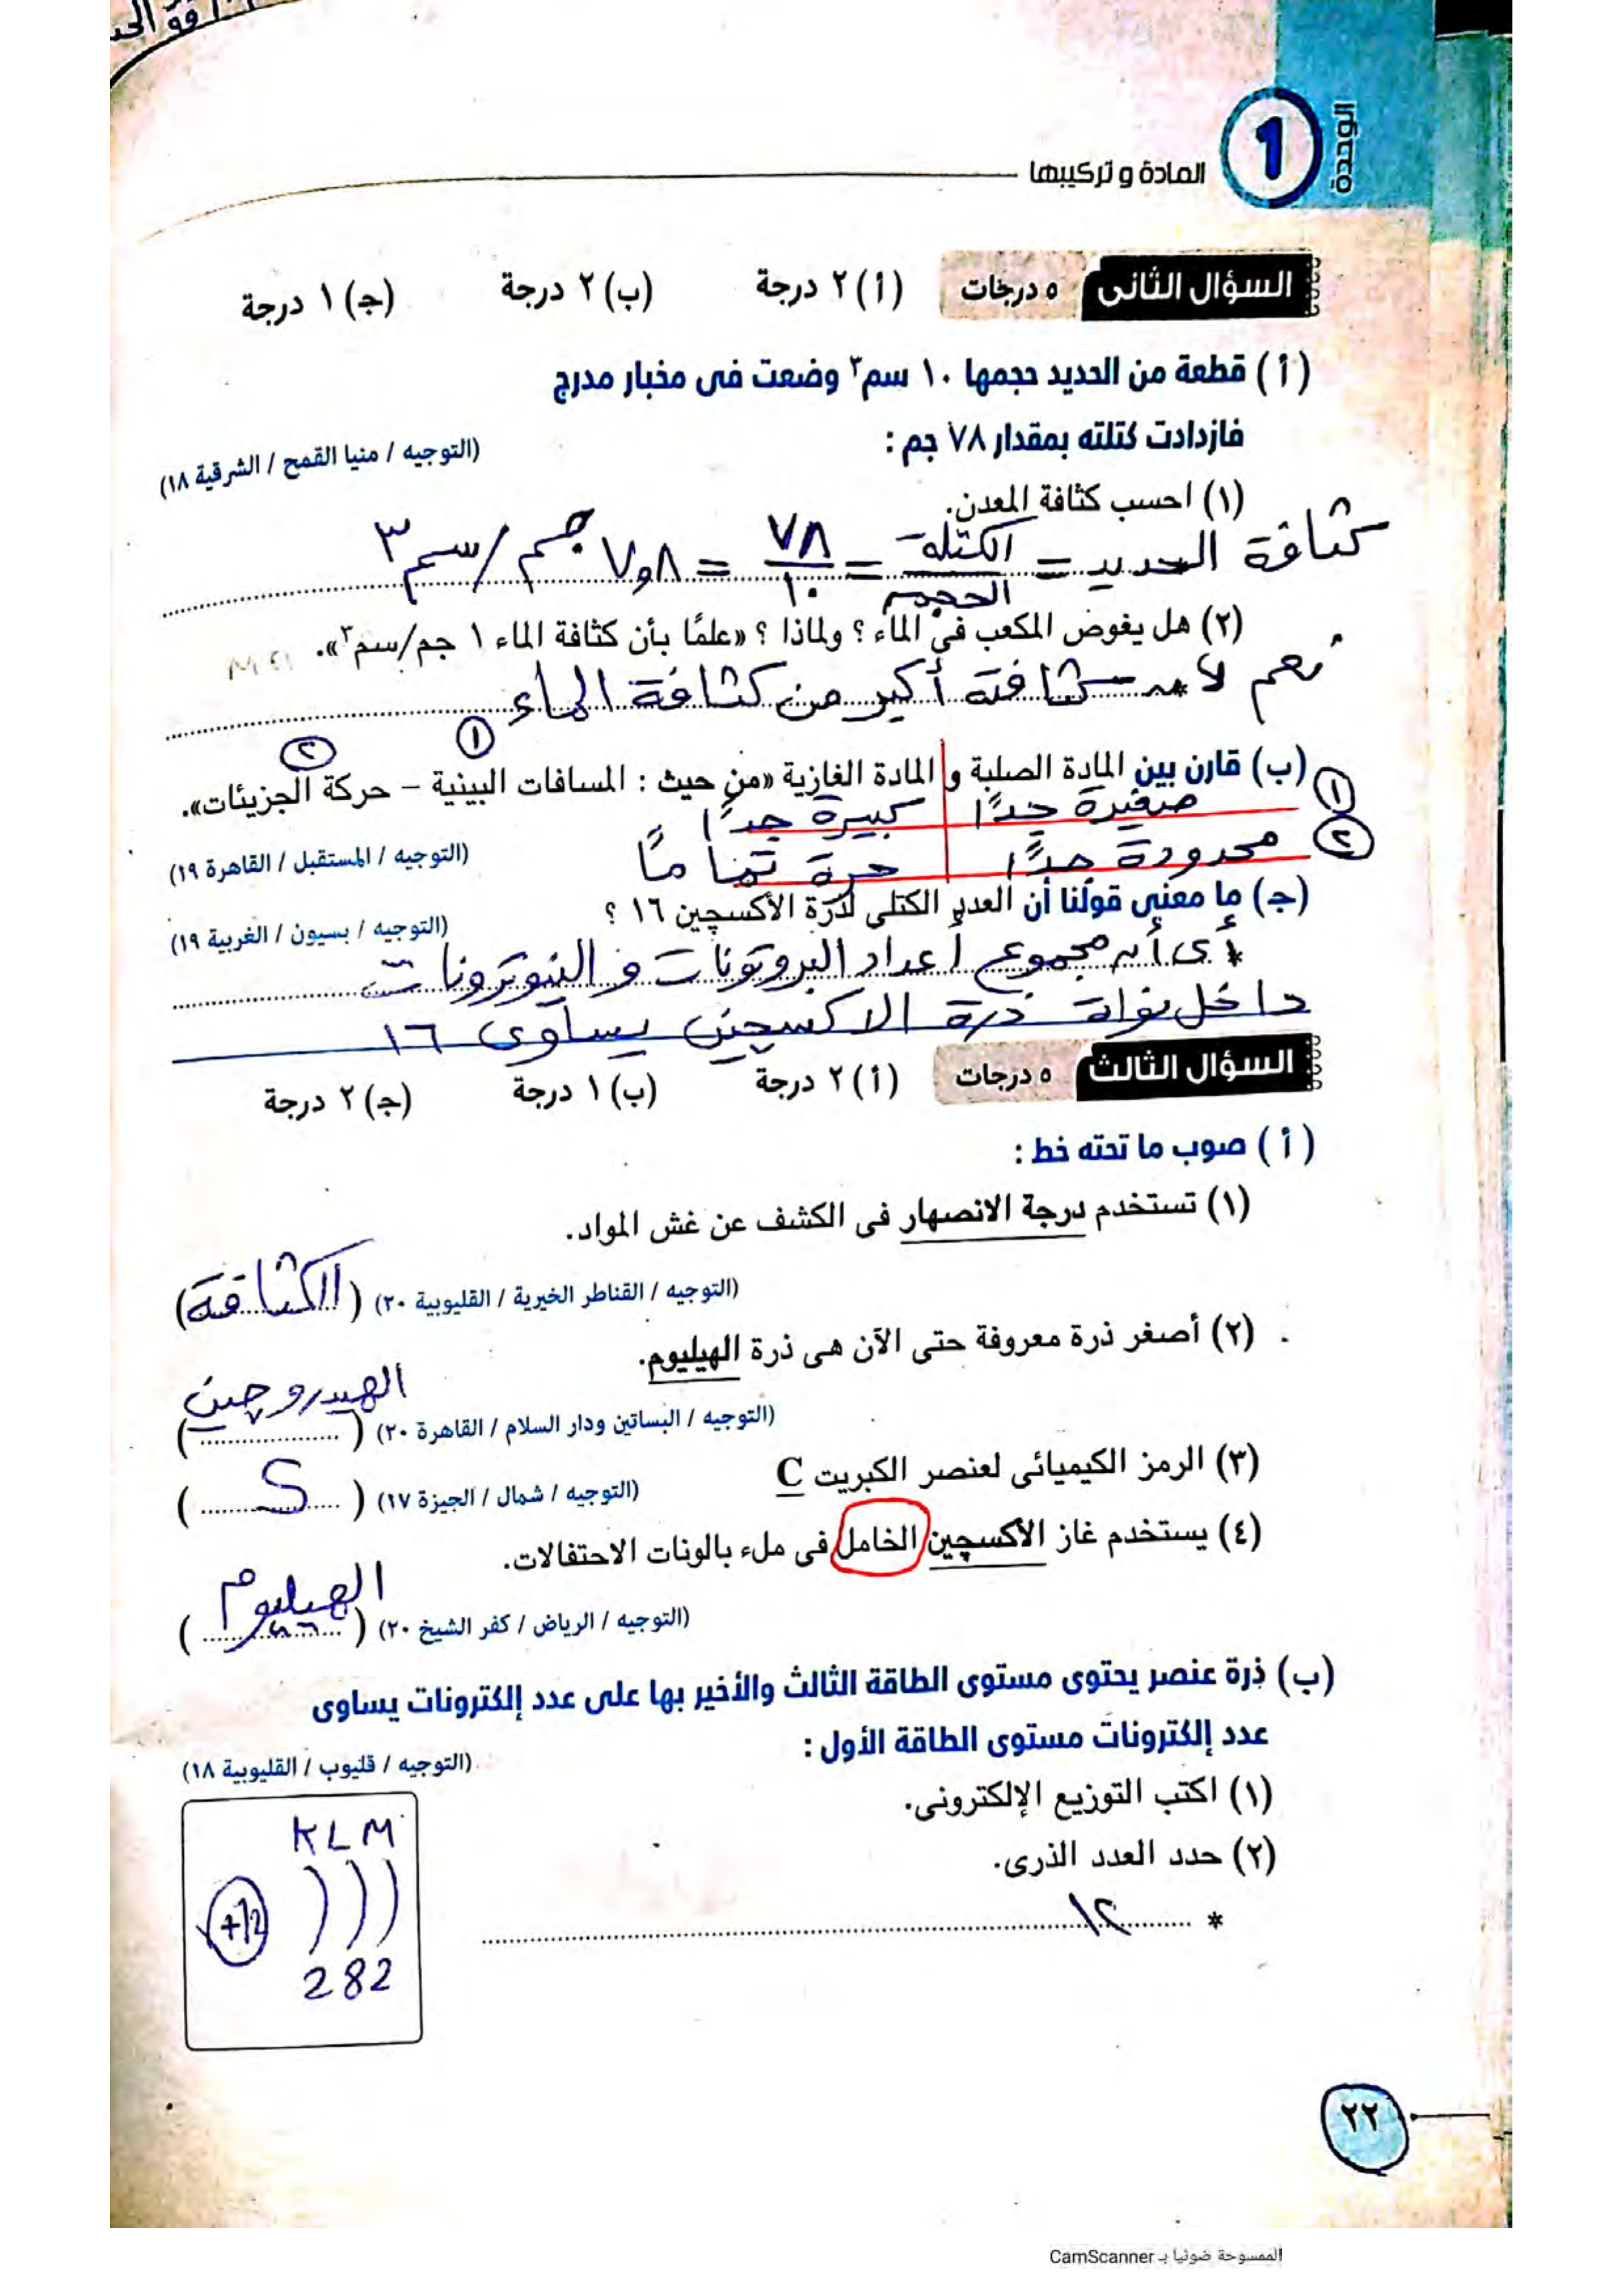 الوحدة
1
المادة و تركيبها
السؤال الثانى ٥ درجات (أ) ٢ درجة (ب) ٢ درجة (جـ) ١ درجة
(أ) قطعة من الحديد حجمها ١٠ سم٣ وضعت فى مخبار مدرج
فازدادت كتلته بمقدار ٧٨ جم :
(التوجيه / منيا القمح / الشرقية ١٨)
(١) احسب كثافة المعدن.
كثافة الحديد = الكتلة / الحجم = ٧٨ / ١٠ = ٧,٨ جم/سم٣
(٢) هل يغوص المكعب فى الماء ؟ ولماذا ؟ «علمًا بأن كثافة الماء ١ جم/سم٣».
نعم لأن كثافته أكبر من كثافة الماء
١ ٢
(ب) قارن بين المادة الصلبة و المادة الغازية «من حيث : المسافات البينية – حركة الجزيئات».
١ صغيرة جدًا كبيرة جدًا
٢ محدودة جدًا حرة تمامًا
(التوجيه / المستقبل / القاهرة ١٩)
(جـ) ما معنى قولنا أن العدد الكتلى لذرة الأكسجين ١٦ ؟
(التوجيه / بسيون / الغربية ١٩)
* أى أن مجموع أعداد البروتونات و النيوترونات
داخل نواة ذرة الاكسجين يساوى ١٦
السؤال الثالث ٥ درجات (أ) ٢ درجة (ب) ١ درجة (جـ) ٢ درجة
(أ) صوب ما تحته خط :
(١) تستخدم درجة الانصهار فى الكشف عن غش المواد.
(التوجيه / القناطر الخيرية / القليوبية ٢٠) (الكثافة)
(٢) أصغر ذرة معروفة حتى الآن هى ذرة الهيليوم.
الهيدروجين
(التوجيه / البساتين ودار السلام / القاهرة ٢٠) (....................)
(٣) الرمز الكيميائى لعنصر الكبريت C
(التوجيه / شمال / الجيزة ١٧) (S)
(٤) يستخدم غاز الأكسچين الخامل فى ملء بالونات الاحتفالات.
(التوجيه / الرياض / كفر الشيخ ٢٠) (الهيليوم)
(ب) ذرة عنصر يحتوى مستوى الطاقة الثالث والأخير بها على عدد إلكترونات يساوى
عدد إلكترونات مستوى الطاقة الأول :
(التوجيه / قليوب / القليوبية ١٨)
(١) اكتب التوزيع الإلكترونى.
(٢) حدد العدد الذرى.
* ١٢
K L M
+12
2 8 2
٢٢
الممسوحة ضوئيا بـ CamScanner